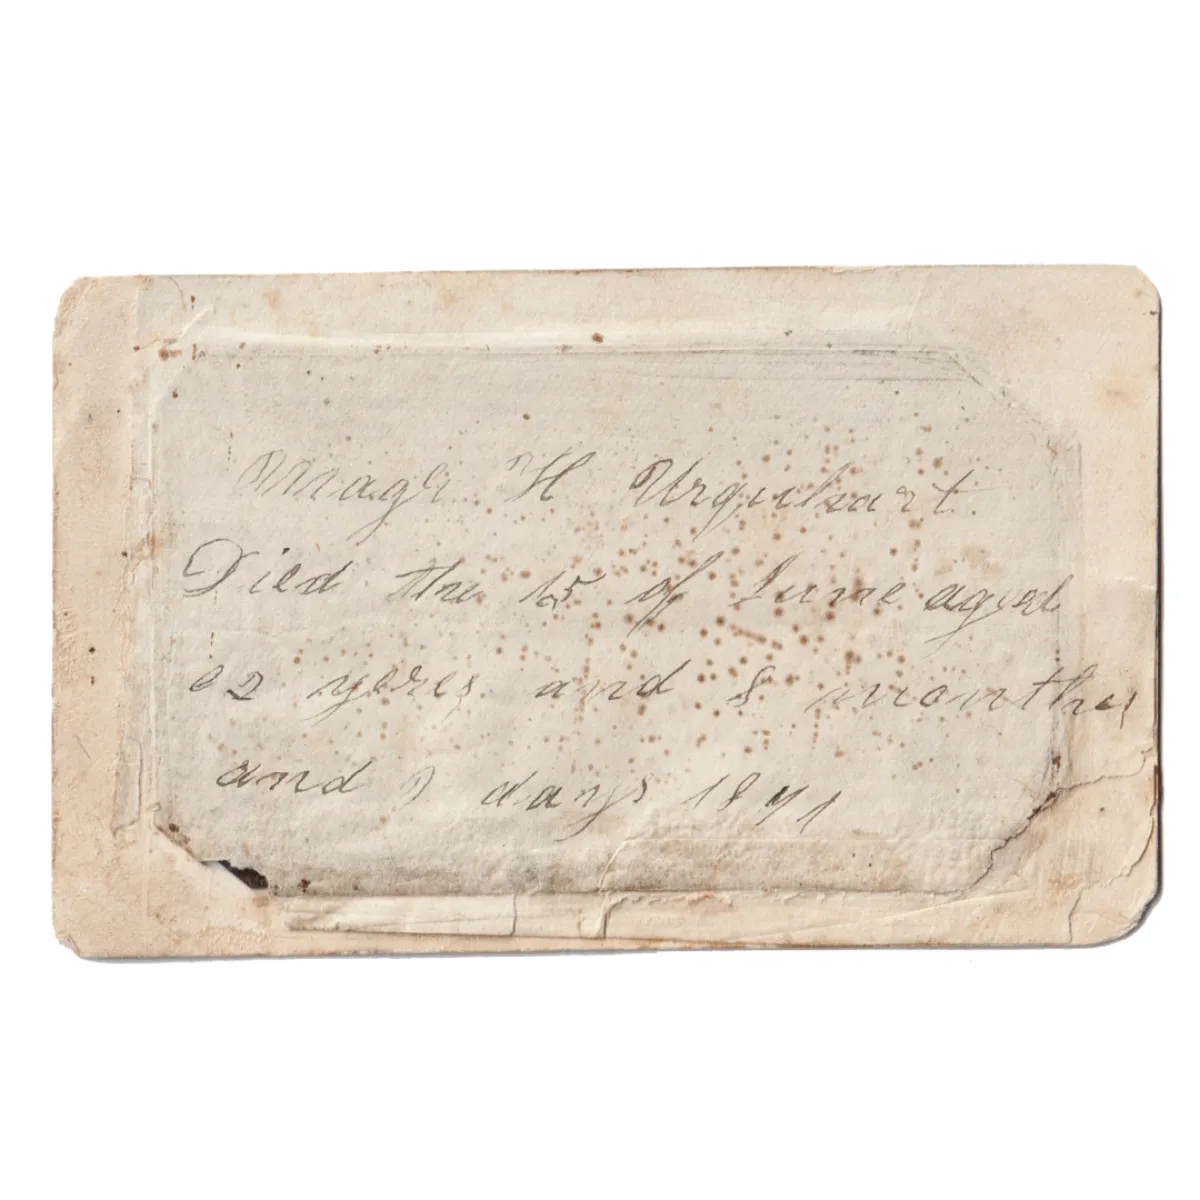 H Urquhart
Died the 15 of June aged
yeres and 8 months
and days 1871